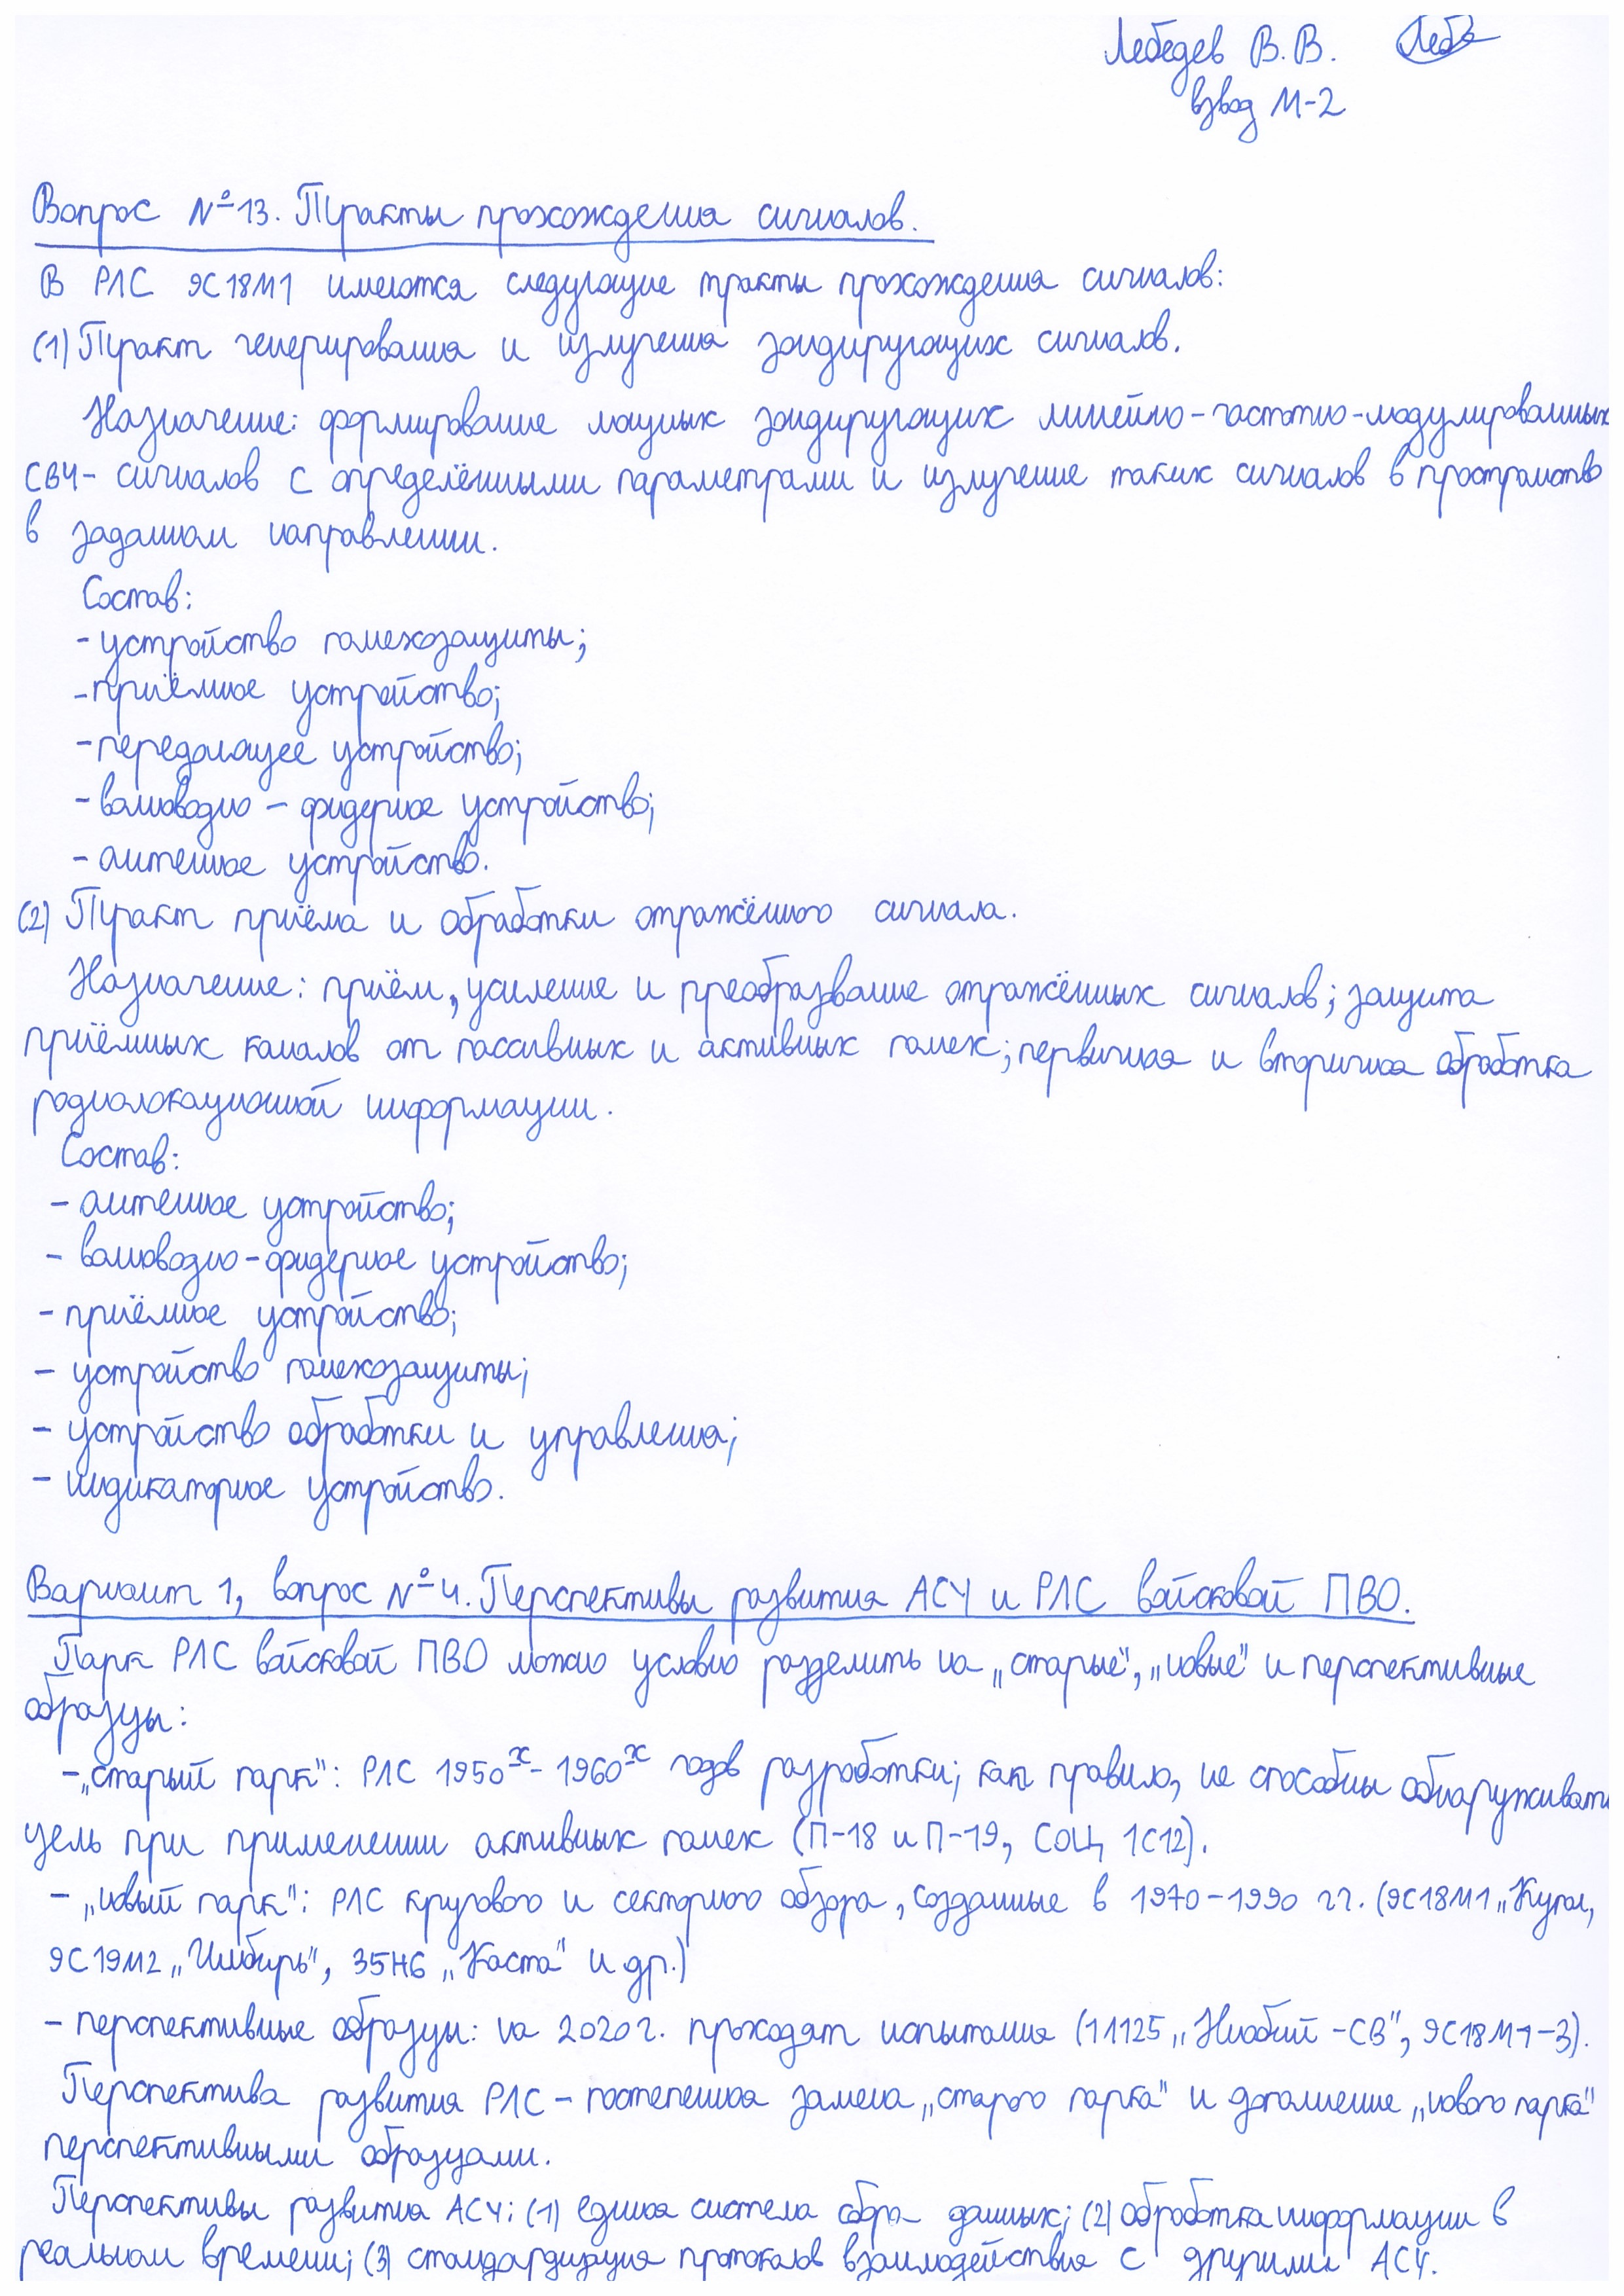 Лебедев В.В. Леб
взвод М-2
Вопрос №13. Тракты прохождения сигналов.
В РЛС 9С18М1 имеются следующие тракты прохождения сигналов:
(1) Тракт генерирования и излучения зондирующих сигналов.
Назначение: формирование мощных зондирующих линейно-частотно-модулированных
СВЧ-сигналов с определёнными параметрами и излучение таких сигналов в пространство
в заданном направлении.
Состав:
- устройство помехозащиты;
- приёмное устройство;
- передающее устройство;
- волноводно-фидерное устройство;
- антенное устройство.
(2) Тракт приёма и обработки отражённого сигнала.
Назначение: приём, усиление и преобразвание отражённых сигналов; защита
приёмных каналов от пассивных и активных помех; первичная и вторичная обработка
радиолокационной информации.
Состав:
- антенное устройство;
- волноводно-фидерное устройство;
- приёмное устройство;
- устройство помехозащиты;
- устройство обработки и управления;
- индикаторное устройство.
Вариант 1, вопрос №4. Перспективы развития АСУ и РЛС войсковой ПВО.
Парк РЛС войсковой ПВО можно условно разделить на „старые", „новые" и перспективные
образцы:
- „старый парк": РЛС 1950х-1960х годов разработки; как правило, не способны обнаруживать
цель при применении активных помех (П-18 и П-19, СОЦ 1С12).
- „новый парк": РЛС кругового и секторного обзора, созданные в 1970-1990 гг. (9С18М1 „Купол,
9С19М2 „Имбирь", 35Н6 „Каста" и др.)
- перспективные образцы: на 2020г. проходят испытания (1Л125 „Ниобий-СВ", 9С18М1-3).
Перспектива развития РЛС - постепенная замена „старого парка" и дополнение „нового парка"
перспективными образцами.
Перспективы развития АСУ: (1) единая система сбора данных; (2) обработка информации в
реальном времени; (3) стандардизация протоколов взаимодействия с другими АСУ.